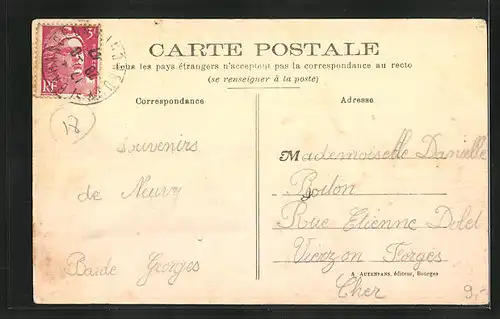 CARTE POSTALE
Tous les pays étrangers n'acceptent pas la correspondance au recto
(se renseigner à la poste)
Correspondance
Souvenirs
de Neuvy
Georges
Adresse
Mademoiselle Danielle
Rue Etienne Dolet
Vierzon Forges
A. AUXENFANS, éditeur, Bourges
Cher
3F
RF
18
9,-